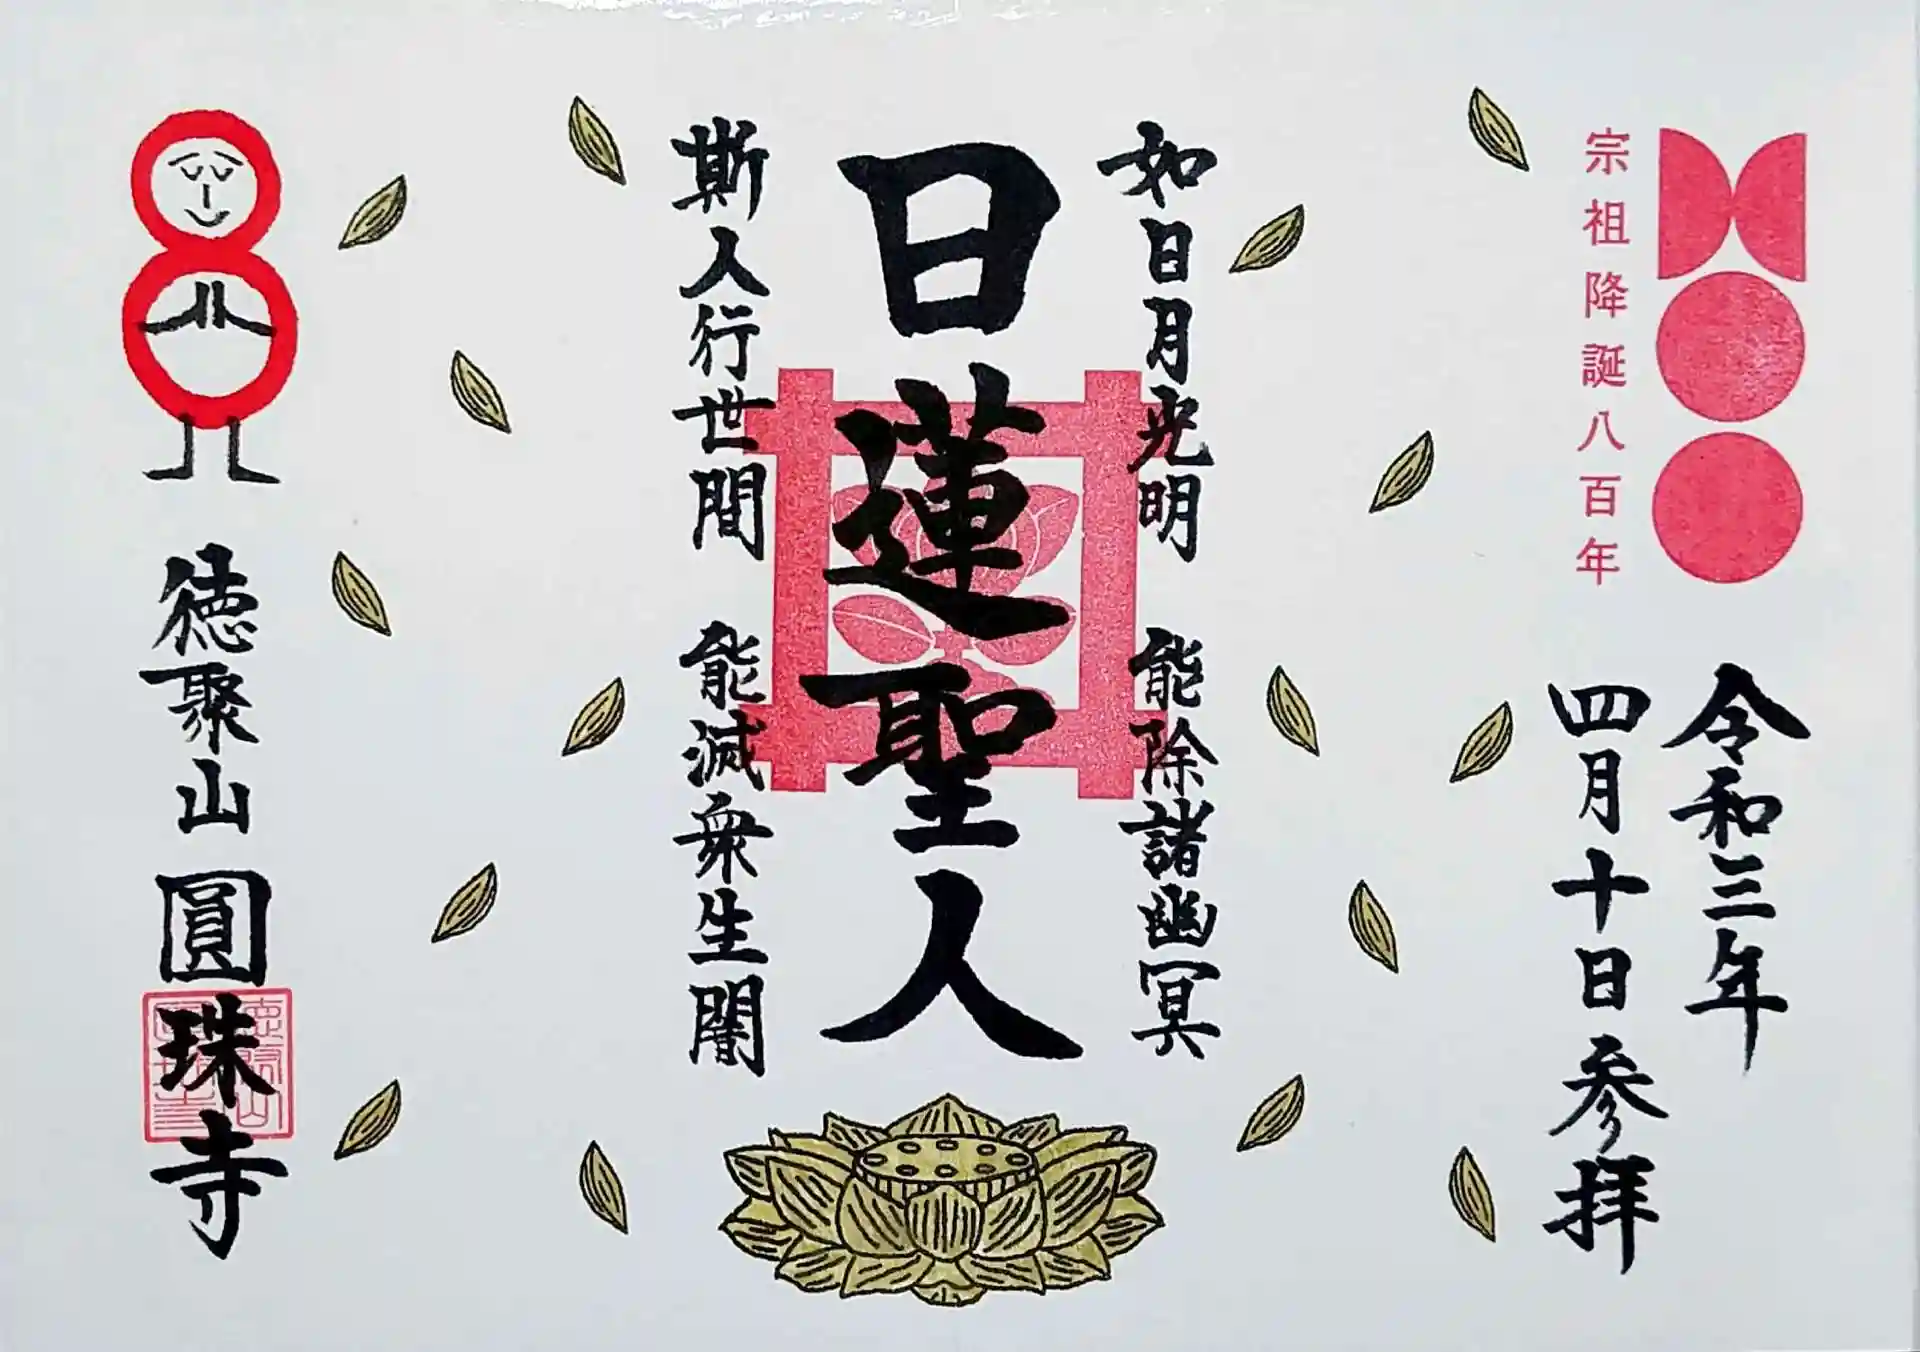 宗祖降誕八百年
令和三年
四月十日参拝
如日月光明 能除諸幽冥
日蓮聖人
斯人行世間 能滅衆生闇
徳聚山 圓珠寺